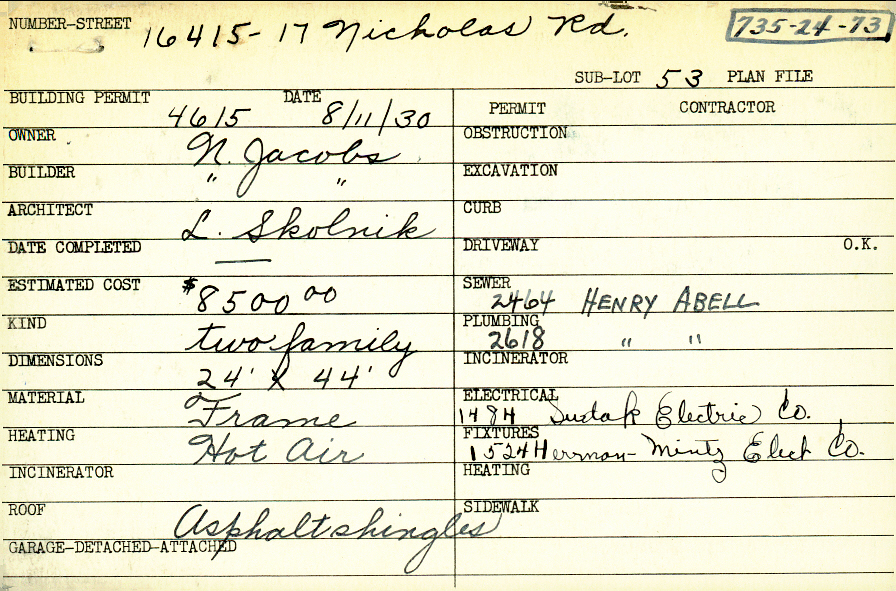 NUMBER-STREET 16415-17 Nicholas Rd. 735-24-73
SUB-LOT 53 PLAN FILE
BUILDING PERMIT 4615 DATE 8/11/30
OWNER N. Jacobs
BUILDER " "
ARCHITECT L. Skolnik
DATE COMPLETED —
ESTIMATED COST $8500 00
KIND two family
DIMENSIONS 24' x 44'
MATERIAL Frame
HEATING Hot Air
INCINERATOR
ROOF Asphalt shingles
GARAGE-DETACHED-ATTACHED
PERMIT CONTRACTOR
OBSTRUCTION
EXCAVATION
CURB
DRIVEWAY O.K.
SEWER 2464 HENRY ABELL
PLUMBING 2618 " "
INCINERATOR
ELECTRICAL 1484 Electric Co.
FIXTURES 1524 Herman-Mintz Elect Co.
HEATING
SIDEWALK